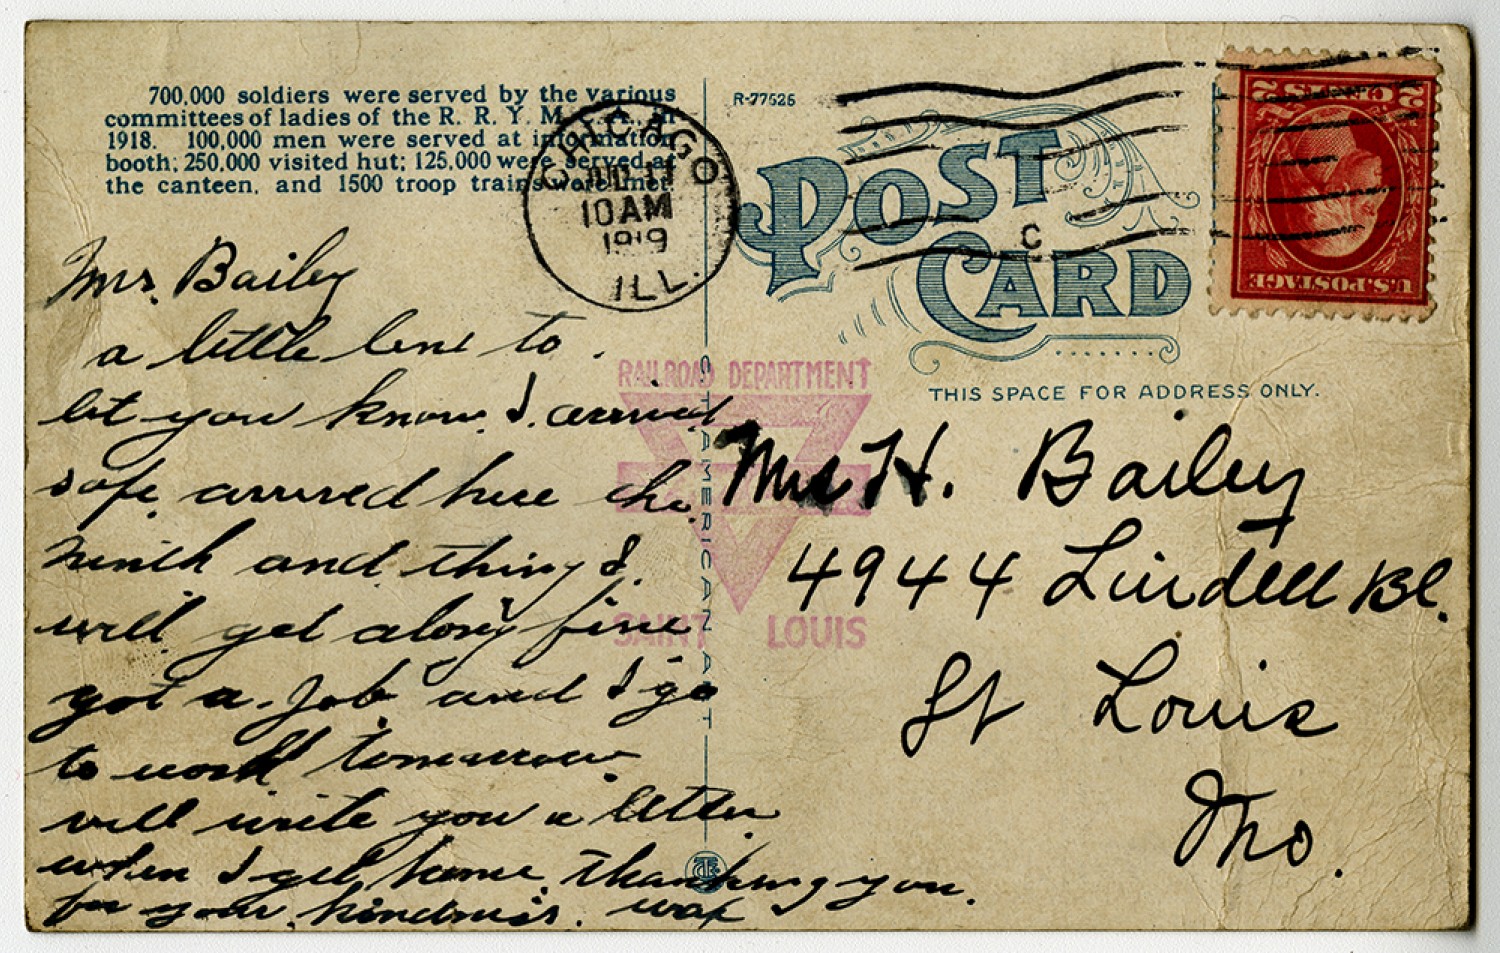 700,000 soldiers were served by the various
committees of ladies of the R. R. Y. M. C. A., in
1918. 100,000 men were served at information
booth; 250,000 visited hut; 125,000 were served at
the canteen, and 1500 troop trains were met.
R-77525
CHICAGO
10 AM
1919
ILL.
POST CARD
C
2 CENTS 2
U.S. POSTAGE
THIS SPACE FOR ADDRESS ONLY.
RAILROAD DEPARTMENT
SAINT LOUIS
C.T. AMERICAN ART
Mrs. Bailey
a little line to.
let you know I. arrived
safe. arrived here the.
ninth and think I.
will get along fine
got a. Job. and I go
to work tomorrow.
will write you a letter
when I get home. thanking you.
for your kindness.
Mrs H. Bailey
4944 Lindell Bl.
St Louis
Mo.